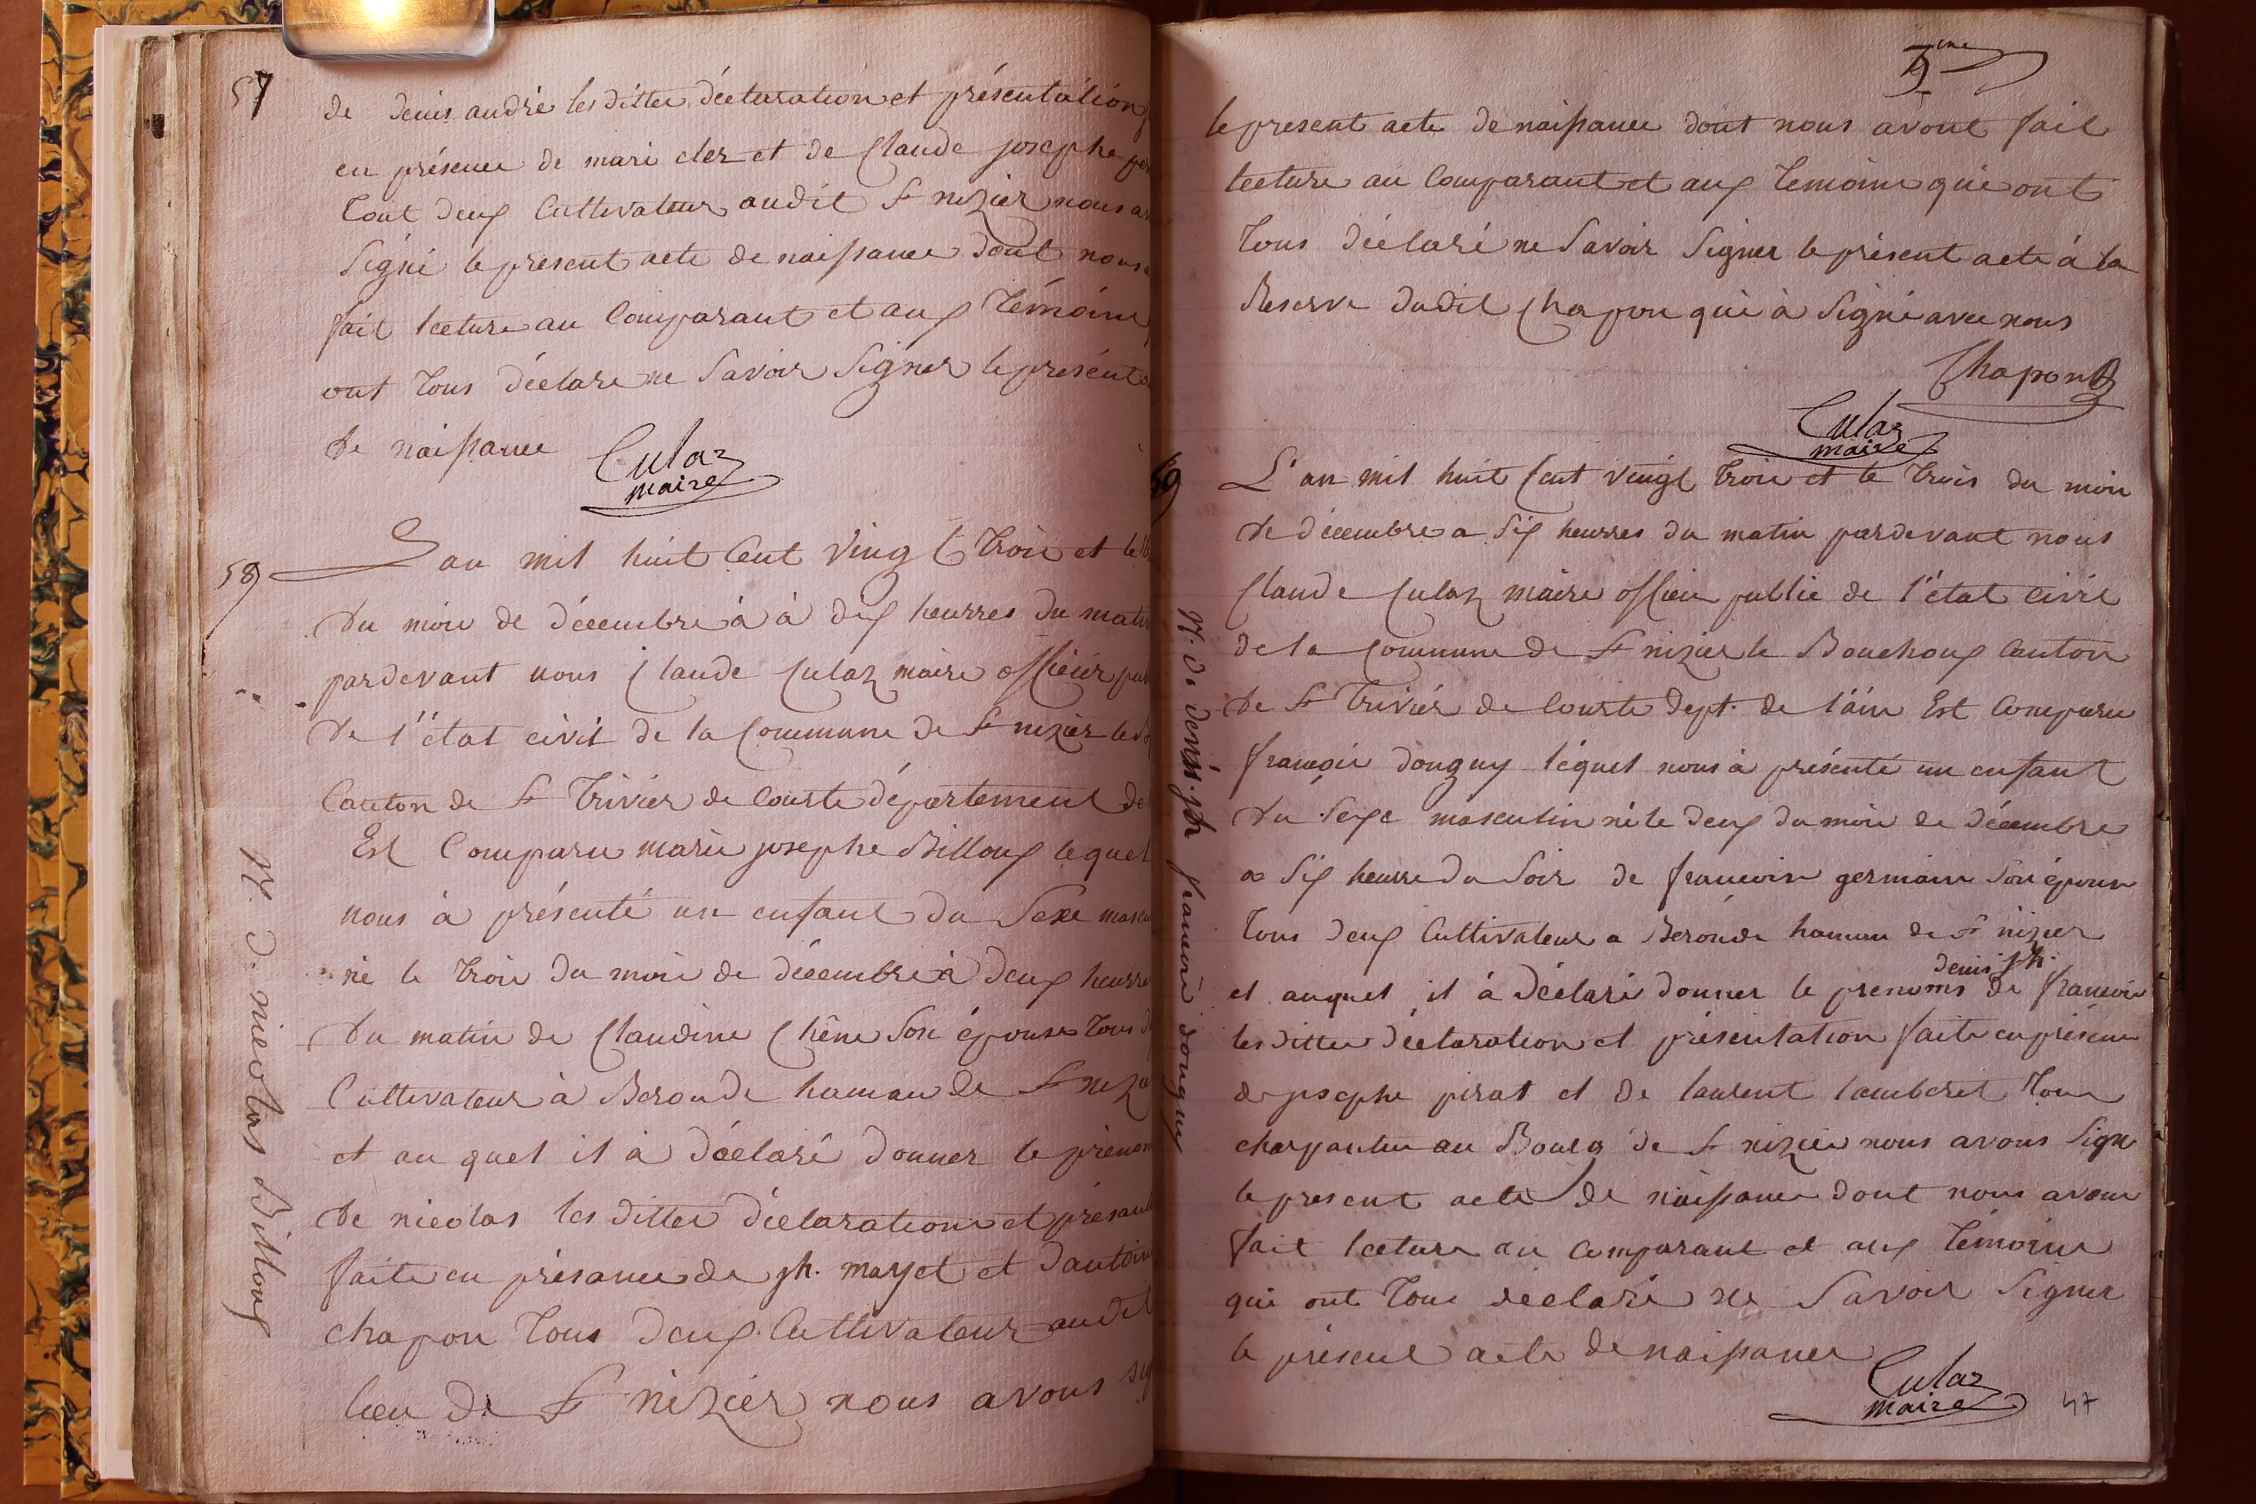 57
de denis andré les dittes déclaration et présentation
en présence de mari cler et de Claude josephe
tout deux Cultivateur audit St nizier nous
Signé le present acte de naissance dont nous
fait lecture au Comparant et aux témoins
ont tous déclaré ne Savoir Signer le présent
de naissance
Culaz
maire
58
L'an mil huit Cent vingt trois et le
du mois de décembre à à dix heurres du matin
pardevant nous Claude Culaz maire officier
de l'état civil de la Commune de St nizier le
Canton de St Trivier de Courte département de
Est Comparu marie josephe Billoux lequel
nous à présenté un enfant du Sexe
né le trois du mois de décembre à deux heurres
du matin de Claudine Chêne Son épouse tous
Cultivateur à Beronde hamau de St
et au quel il à déclaré donner le prénom
de nicolas les dittes déclaration et
faite en présance de jph. mayet et dantoine
chapon tous deux Cultivateur audit
lieu de St nizier nous avons
N. D. nicolas Billoux
5eme
le present acte de naissance dont nous avont fait
lecture au Comparant et aux témoins qui ont
tous déclaré ne Savoir Signer le présent acte à la
Reserve dudit Chapon qui à Signé avec nous
Chapon
Culaz
maire
59
L'an mil huit Cent vingt trois et le trois du mois
de décembre a Six heurres du matin pardevant nous
Claude Culaz maire officier public de l'état civil
de la Commune de St nizier le Bouchoux Canton
de St Trivier de Courte dept. de l'ain Est Comparu
françois donguy léquel nous à présenté un enfant
du Sexe masculin né le deux du mois de décembre
a Six heurre du Soir de francoise germain Son épouse
tous deux Cultivateur a Beronde hamau de St nizier
denis jph.
et auquel il à déclaré donner le prenoms de francois
les dittes déclaration et présentation faite en présence
de josephe pirat et de laurent lamberet tous
charpantier au Bourg de St nizier nous avons Signé
le present acte de naissance dont nous avons
fait lecture au Comparant et aux témoins
qui ont tous déclaré ne Savoir Signer
le présent acte de naissance
Culaz
maire
47
N. D. denis. jph francois donguy